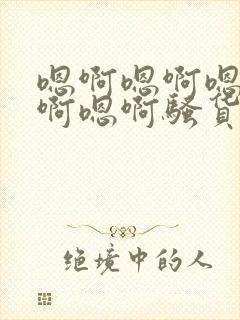 嗯啊嗯啊嗯
啊嗯啊骚货
绝境中的人